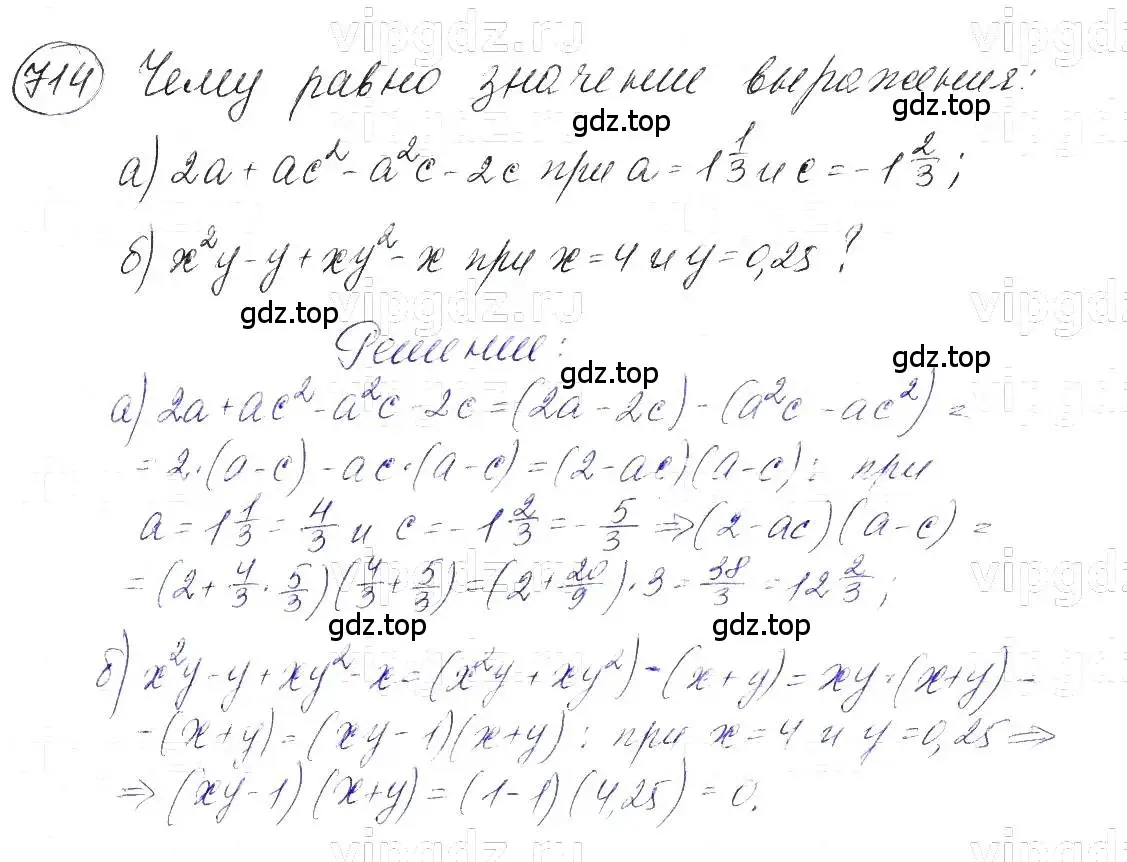 vipgdz.ru
714 Чему равно значение выражения:
gdz.top gdz.top
а) 2a + ac² - a²c - 2c при a = 1 1/3 и c = -1 2/3;
б) x²y - y + xy² - x при x = 4 и y = 0,25?
vipgdz.ru vipgdz
gdz.top
Решение:
gdz.top gdz.top
а) 2a + ac² - a²c - 2c = (2a - 2c) - (a²c - ac²) =
= 2·(a - c) - ac·(a - c) = (2 - ac)(a - c): при
a = 1 1/3 = 4/3 и c = -1 2/3 = -5/3 ⇒ (2 - ac)(a - c) =
= (2 + 4/3 · 5/3)(4/3 + 5/3) = (2 + 20/9)·3 = 38/3 = 12 2/3;
vipgdz.ru vipgdz
gdz.top gdz.top
б) x²y - y + xy² - x = (x²y + xy²) - (x + y) = xy·(x + y) -
- (x + y) = (xy - 1)(x + y): при x = 4 и y = 0,25 ⇒
⇒ (xy - 1)(x + y) = (1 - 1)(4,25) = 0.
vipgdz.ru vipgdz